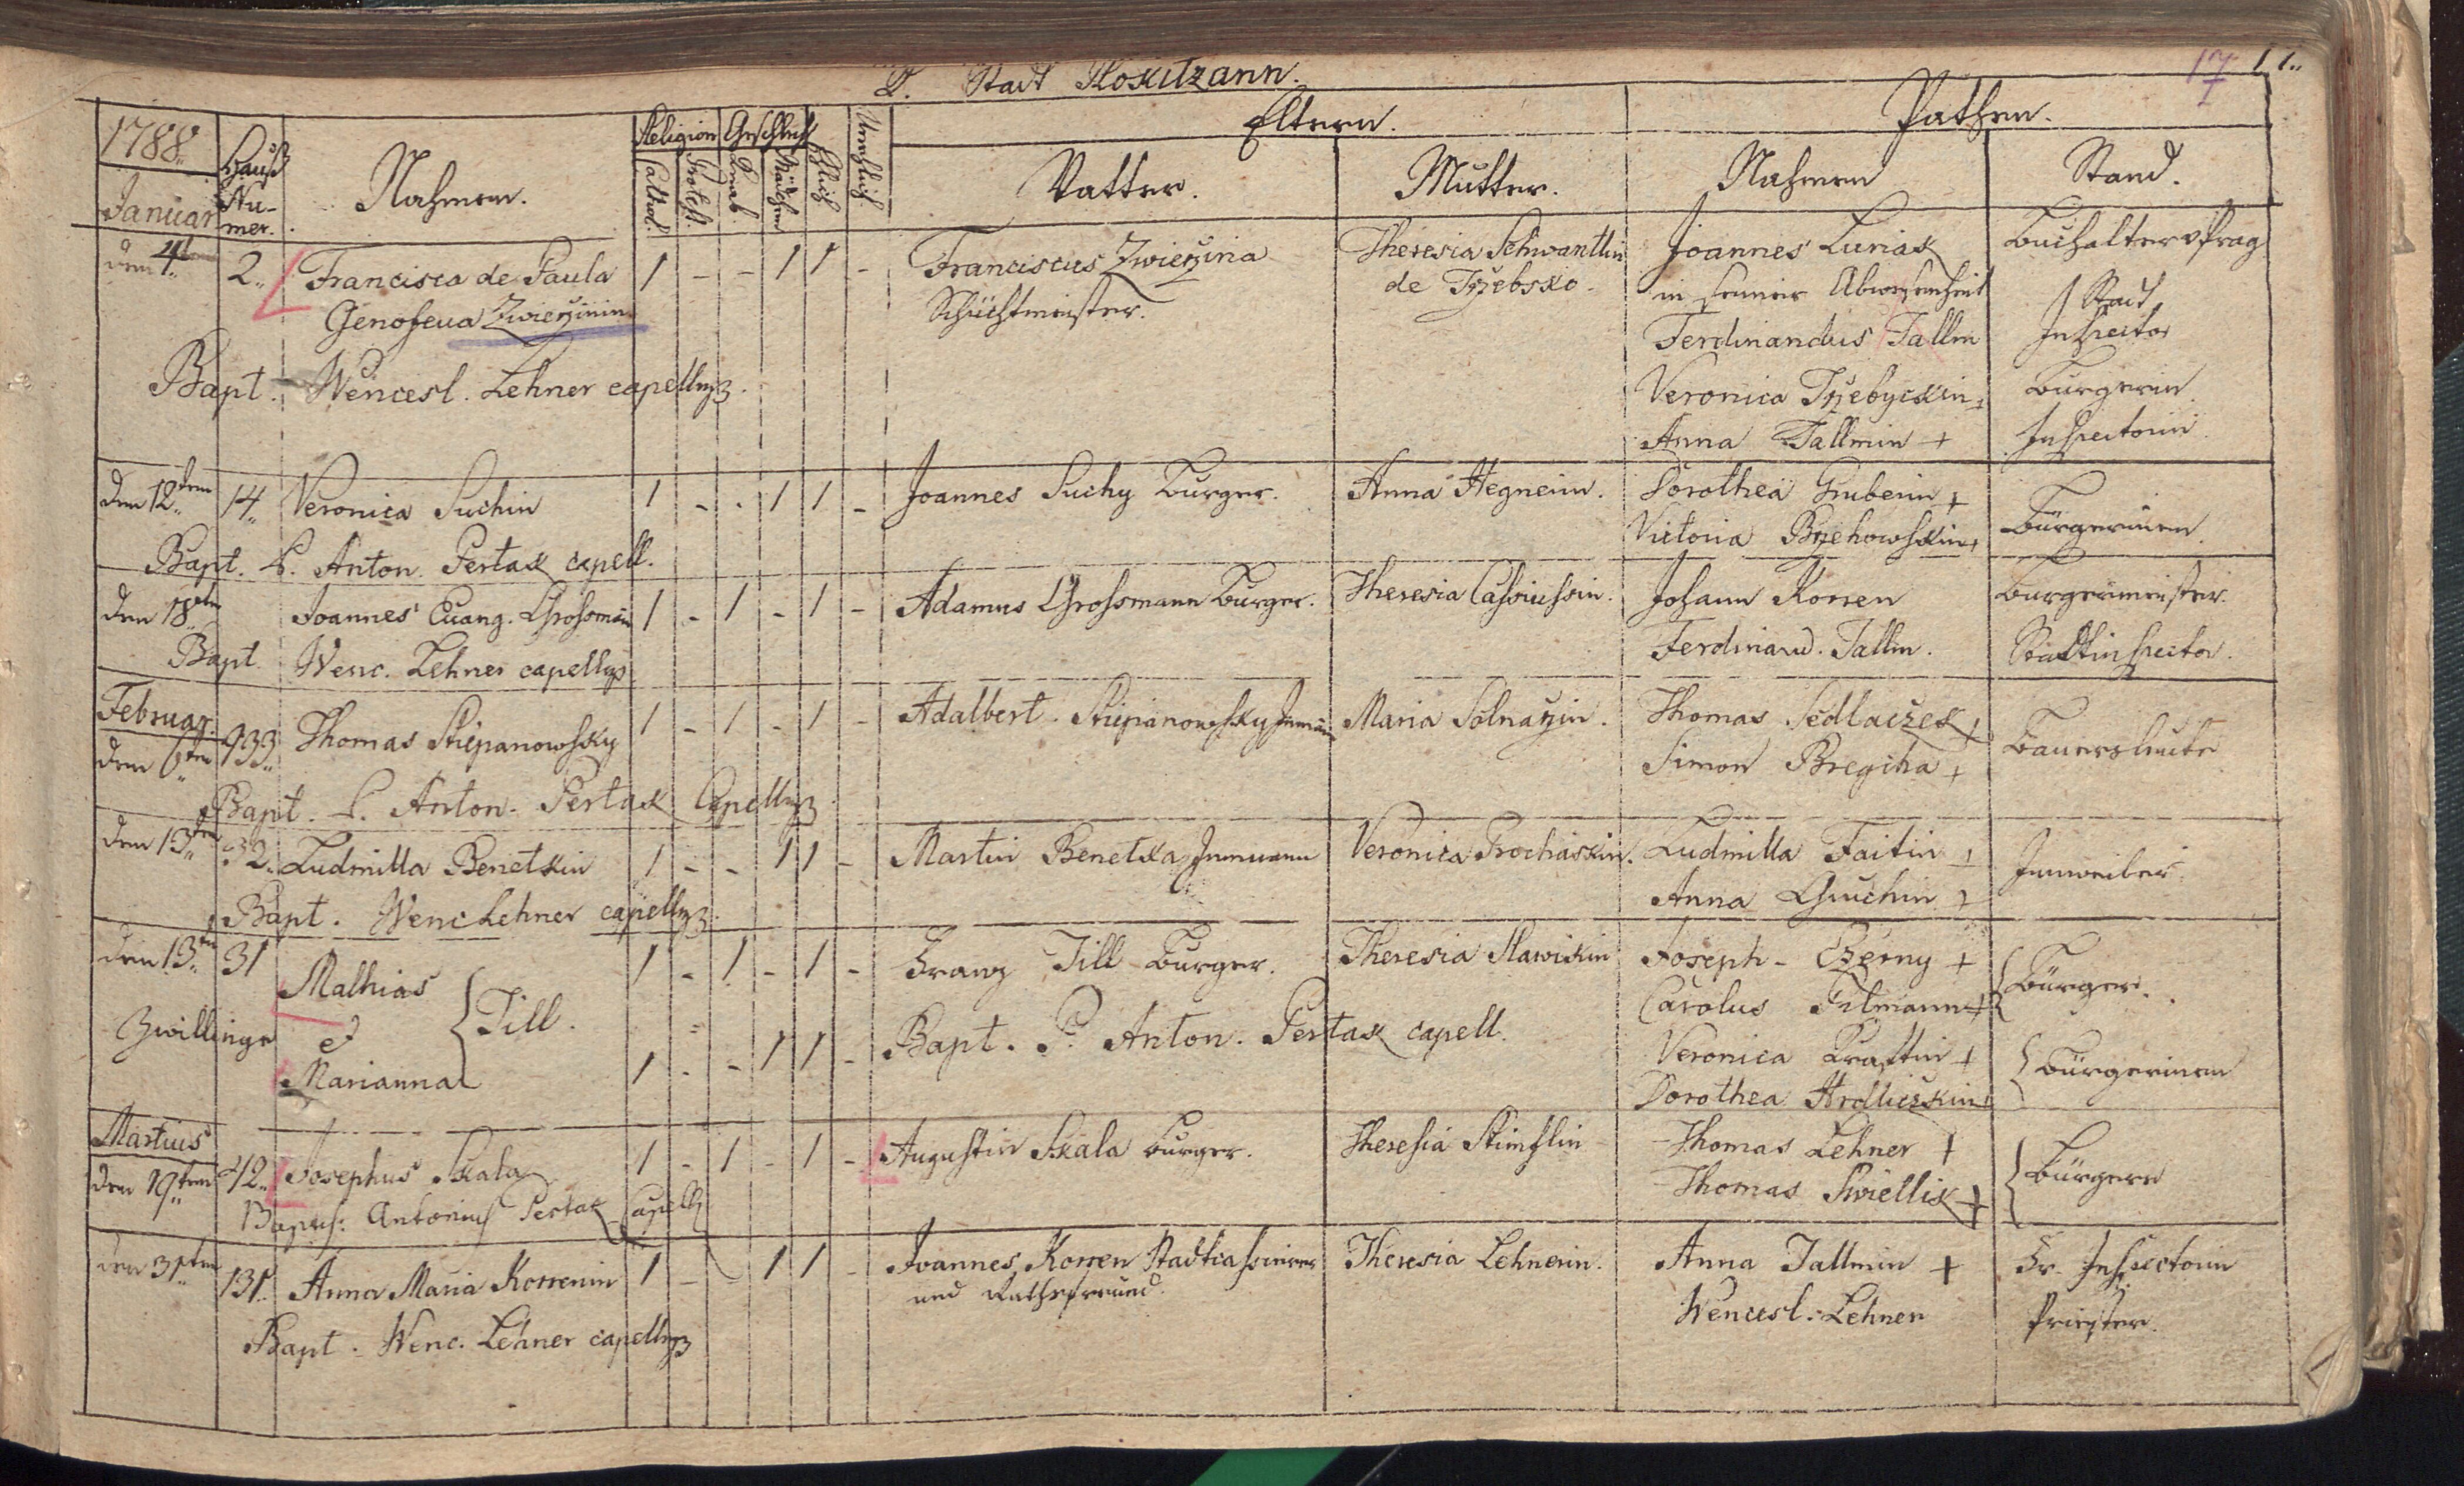 Stadt Rokitzann.
17
11.
1788.
Januar
Hauß Nu-mer.
Nahmen.
Religion
Cathol.
Protest.
Geschlecht
Knab
Mädchen
Ehlich
Unehlich
Eltern.
Vatter.
Mutter.
Pathen.
Nahmen
Stand.
den 4ten 2. Francisca de Paula 1 - - 1 1 - Franciscus Zwierzina Theresia Schwantlin Joannes Luniak Buchalter v Prag
Genofeva Zwierzinin Schichtmeister. de Trzebsko. in seiner Abwesenheit Stadt
Ferdinandus Tallm Inspector
Bapt. Wencesl. Lehner capellns. Veronica Trzebyckin + Bürgerin.
Anna Tallmin + Inspectorin
den 12ten 14. Veronica Suchin 1 - - 1 1 - Joannes Suchy Burger. Anna Hegnerin. Dorothea Gruberin +
Victoria Brzehowskin + Bürgerinen.
Bapt. P. Anton. Pertak capell.
den 18ten Joannes Evang. Großman 1 - 1 - 1 - Adamus Großmann Burger. Theresia Caßiußin. Johann Korren Burgermeister.
Bapt. Wenc. Lehner capellns Ferdinand. Tallm. Stadtinspector.
Februar.
den 6ten 933. Thomas Stiepanowsky 1 - 1 - 1 - Adalbert. Stiepanowsky Inman Maria Solnarzin. Thomas Sedlaczek +
Simon Bregcha + Bauersleute
Bapt. P. Anton. Pertak Capellns
den 13ten 32. Ludmilla Benetkin 1 - - 1 1 - Martin Benetka Innmann Veronica Prochaskin. Ludmilla Faitin + Innweiber.
Bapt. Wenc Lehner capellns. Anna Gruchin +
den 13ten 31 Mathias 1 - 1 - 1 - Franz Till Burger. Theresia Slawikin Joseph Czerny + Bürger.
Zwillinge et Till. Carolus Filmann +
Marianna 1 - - 1 1 - Bapt. P. Anton. Pertak capell. Veronica Krattin + Bürgerinen
Dorothea Hrdliczkin +
Martius
den 19ten 42. Josephus Skala 1 - 1 - 1 - Augustin Skala burger. Theresia Stimplin Thomas Lehner + Bürgern
Bapt: Antonius Pertak Capell Thomas Swiellik +
den 31ten 131. Anna Maria Korrenin 1 - - 1 1 - Joannes Korren Stadtkassierer Theresia Lehnerin. Anna Tallmin + Fr. Inspectorin
und Rathsfreund. Wencesl: Lehner Priester.
Bapt. Wenc. Lehner capellns